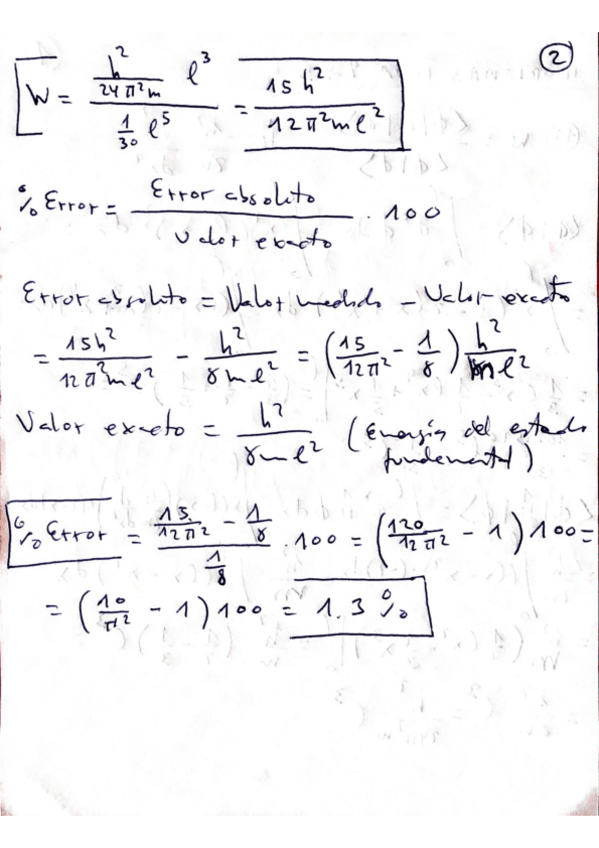 2
W = (h²/(24π²m) l³)/(1/30 l⁵) = 15h²/(12π²ml²)
% Error = Error absoluto/Valor exacto . 100
Error absoluto = Valor medido - Valor exacto
= 15h²/(12π²ml²) - h²/(8ml²) = (15/(12π²) - 1/8) h²/(ml²)
Valor exacto = h²/(8ml²) (Energía del estado
fundamental)
% Error = (15/(12π²) - 1/8)/(1/8) . 100 = (120/(12π²) - 1) 100 =
= (10/π² - 1) 100 = 1.3 %